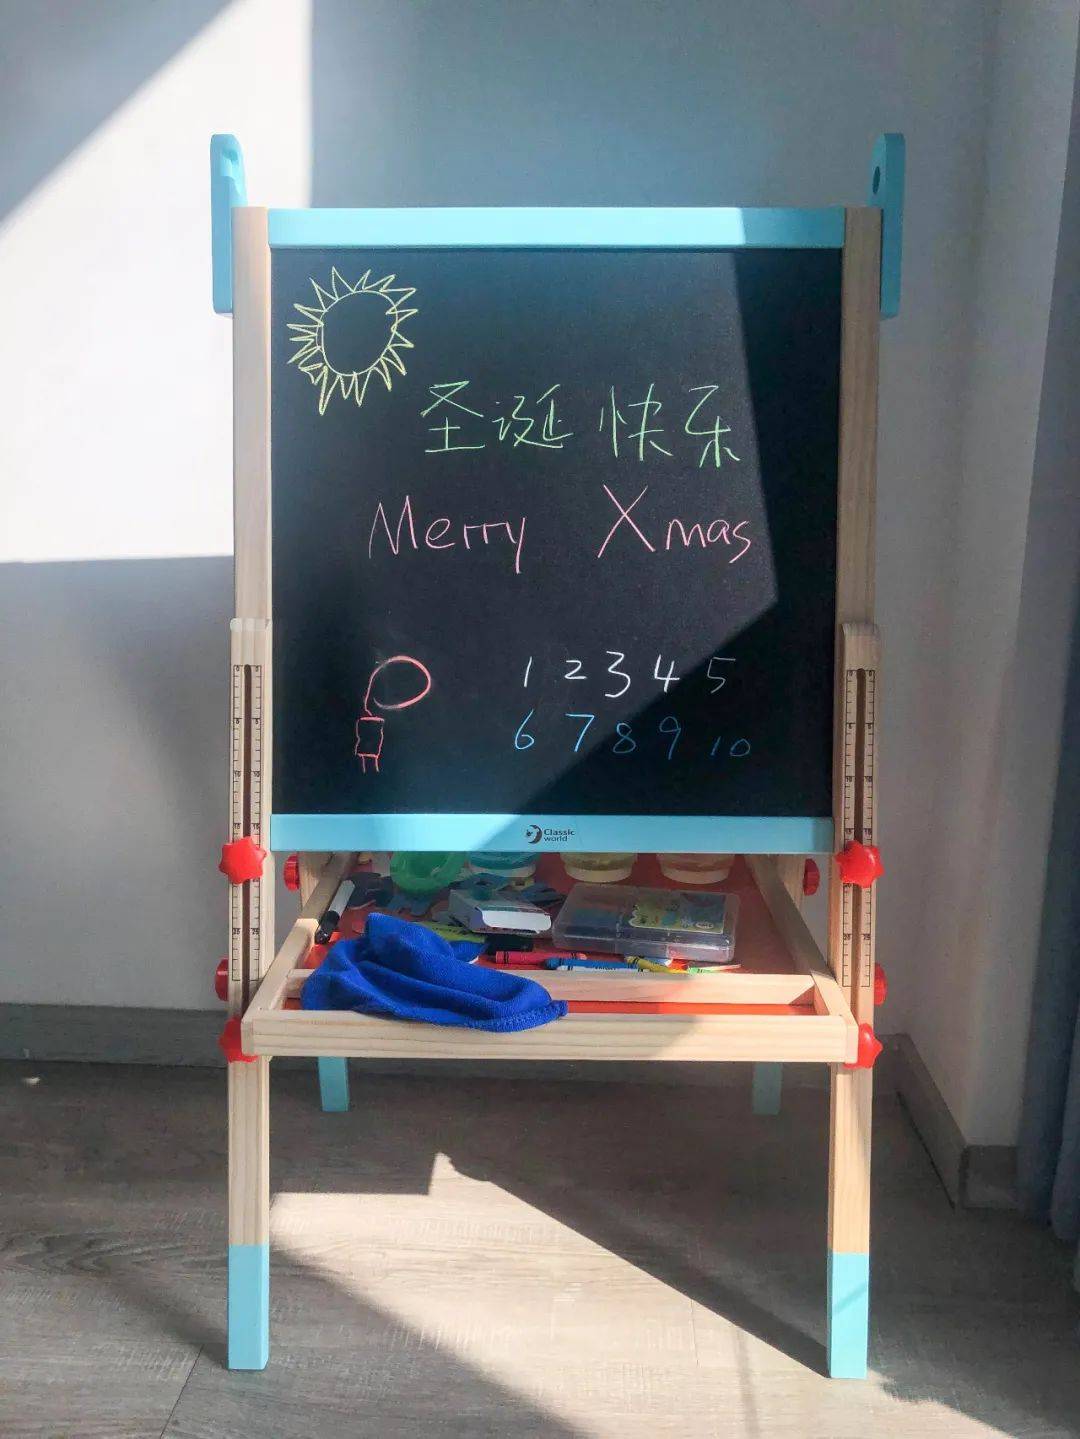 圣诞快乐
Merry Xmas
1 2 3 4 5
6 7 8 9 10
Classic
world